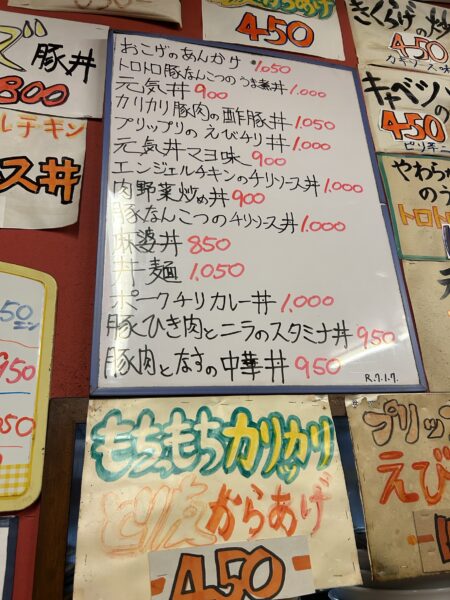 からあげ
450
豚丼
800
ルチキン
ス丼
おこげのあんかけ 1.050
トロトロ豚なんこつのうま煮丼 1.000
元気丼 900
カリカリ豚肉の酢豚丼 1.050
プリップリのえびチリ丼 1.000
元気丼マヨ味 900
エンジェルチキンのチリソース丼 1.000
肉野菜炒め丼 900
豚なんこつのチリソース丼 1.000
麻婆丼 850
丼麺 1.050
ポークチリカレー丼 1.000
豚ひき肉とニラのスタミナ丼 950
豚肉となすの中華丼 950
R.7.1.7.
きくらげの
450
キャベツ
の
450
ピリ辛
やわ
のう
トロトロ
950
050
もちもちカリカリッ
とり皮からあげ
450
プリッ
えび